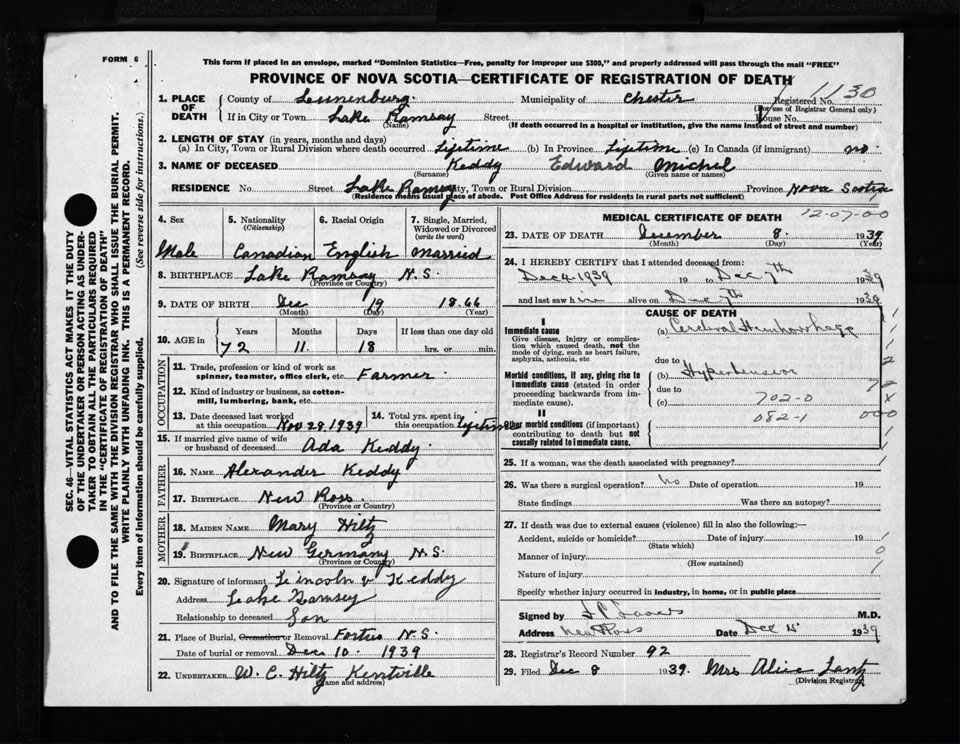 FORM 6
This form if placed in an envelope, marked "Dominion Statistics—Free, penalty for improper use $300," and properly addressed will pass through the mail "FREE"
PROVINCE OF NOVA SCOTIA—CERTIFICATE OF REGISTRATION OF DEATH
1130
1. PLACE OF DEATH County of Lunenburg Municipality of Chester Registered No.
(For use of Registrar General only)
If in City or Town Lake Ramsay Street House No.
(Name) (If death occurred in a hospital or institution, give the name instead of street and number)
2. LENGTH OF STAY (in years, months and days)
(a) In City, Town or Rural Division where death occurred Lifetime (b) In Province Lifetime (c) In Canada (if immigrant) no
3. NAME OF DECEASED Keddy Edward Michel
(Surname) (Given name or names)
RESIDENCE No. Street Lake Ramsey City, Town or Rural Division Province Nova Scotia
(Residence means usual place of abode. Post Office Address for residents in rural parts not sufficient)
4. Sex 5. Nationality 6. Racial Origin 7. Single, Married, Widowed or Divorced
(Citizenship) (write the word)
Male Canadian English Married
8. BIRTHPLACE Lake Ramsay N.S.
(Province or Country)
9. DATE OF BIRTH Dec 19 1866
(Month) (Day) (Year)
10. AGE in Years Months Days If less than one day old
72 11 18 hrs. or min.
OCCUPATION
11. Trade, profession or kind of work as spinner, teamster, office clerk, etc. Farmer
12. Kind of industry or business, as cotton-mill, lumbering, bank, etc.
13. Date deceased last worked at this occupation Nov 28, 1939
14. Total yrs. spent in this occupation Lifetime
15. If married give name of wife or husband of deceased Ada Keddy
FATHER
16. NAME Alexander Keddy
17. BIRTHPLACE New Ross
(Province or Country)
MOTHER
18. MAIDEN NAME Mary Hiltz
19. BIRTHPLACE New Germany N.S.
(Province or Country)
20. Signature of informant Lincoln V Keddy
Address Lake Ramsey
Relationship to deceased Son
21. Place of Burial, Cremation or Removal N.S.
Date of burial or removal Dec 10. 1939
22. UNDERTAKER W. C. Hiltz Kentville
(Name and address)
MEDICAL CERTIFICATE OF DEATH
12-07-00
23. DATE OF DEATH December 8. 1939
(Month) (Day) (Year)
24. I HEREBY CERTIFY that I attended deceased from:
1939 19 to Dec 7th 1939
and last saw him alive on Dec 7th 1939
CAUSE OF DEATH
I
Immediate cause
Give disease, injury or complication which caused death, not the mode of dying, such as heart failure, asphyxia, asthenia, etc
(a) Cerebral Hemhorrhage
due to
Morbid conditions, if any, giving rise to immediate cause (stated in order proceeding backwards from immediate cause).
(b) Hypertension
due to
(c) 702-0
II
Other morbid conditions (if important) contributing to death but not causally related to immediate cause.
082-1
25. If a woman, was the death associated with pregnancy?
26. Was there a surgical operation? no Date of operation 19
State findings Was there an autopsy?
27. If death was due to external causes (violence) fill in also the following:—
Accident, suicide or homicide? Date of injury 19
(State which)
Manner of injury
(How sustained)
Nature of injury
Specify whether injury occurred in industry, in home, or in public place
Signed by M.D.
Address New Ross Date Dec 1939
28. Registrar's Record Number 92
29. Filed Dec 8 1939. Mrs Alice Lantz
(Division Registrar)
SEC. 46—VITAL STATISTICS ACT MAKES IT THE DUTY
OF THE UNDERTAKER OR PERSON ACTING AS UNDER-
TAKER TO OBTAIN ALL THE PARTICULARS REQUIRED
IN THE "CERTIFICATE OF REGISTRATION OF DEATH"
AND TO FILE THE SAME WITH THE DIVISION REGISTRAR WHO SHALL ISSUE THE BURIAL PERMIT.
WRITE PLAINLY WITH UNFADING INK. THIS IS A PERMANENT RECORD.
Every item of information should be carefully supplied. (See reverse side for instructions.)